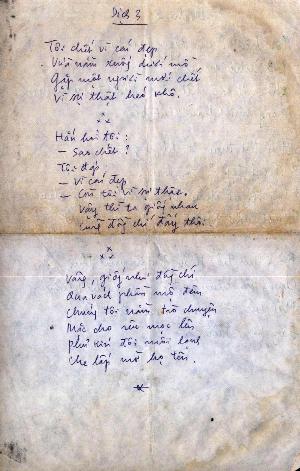 Dịch 3
Tôi chết vì cái đẹp
Vừa nằm xuống dưới mồ
Gặp một người mới chết
Vì sự thật héo khô.
Hắn hỏi tôi :
– Sao chết ?
Tôi đáp
– Vì cái đẹp
– Còn tôi vì sự thật.
Vậy thì ta giống nhau
Cùng đồng chí đấy thôi.
Vâng, giống như đồng chí
Qua vách phần mộ đêm
Chúng tôi nằm trò chuyện
Mặc cho rêu mọc lên
phủ kín đôi môi lạnh
Che lấp mờ họ tên.